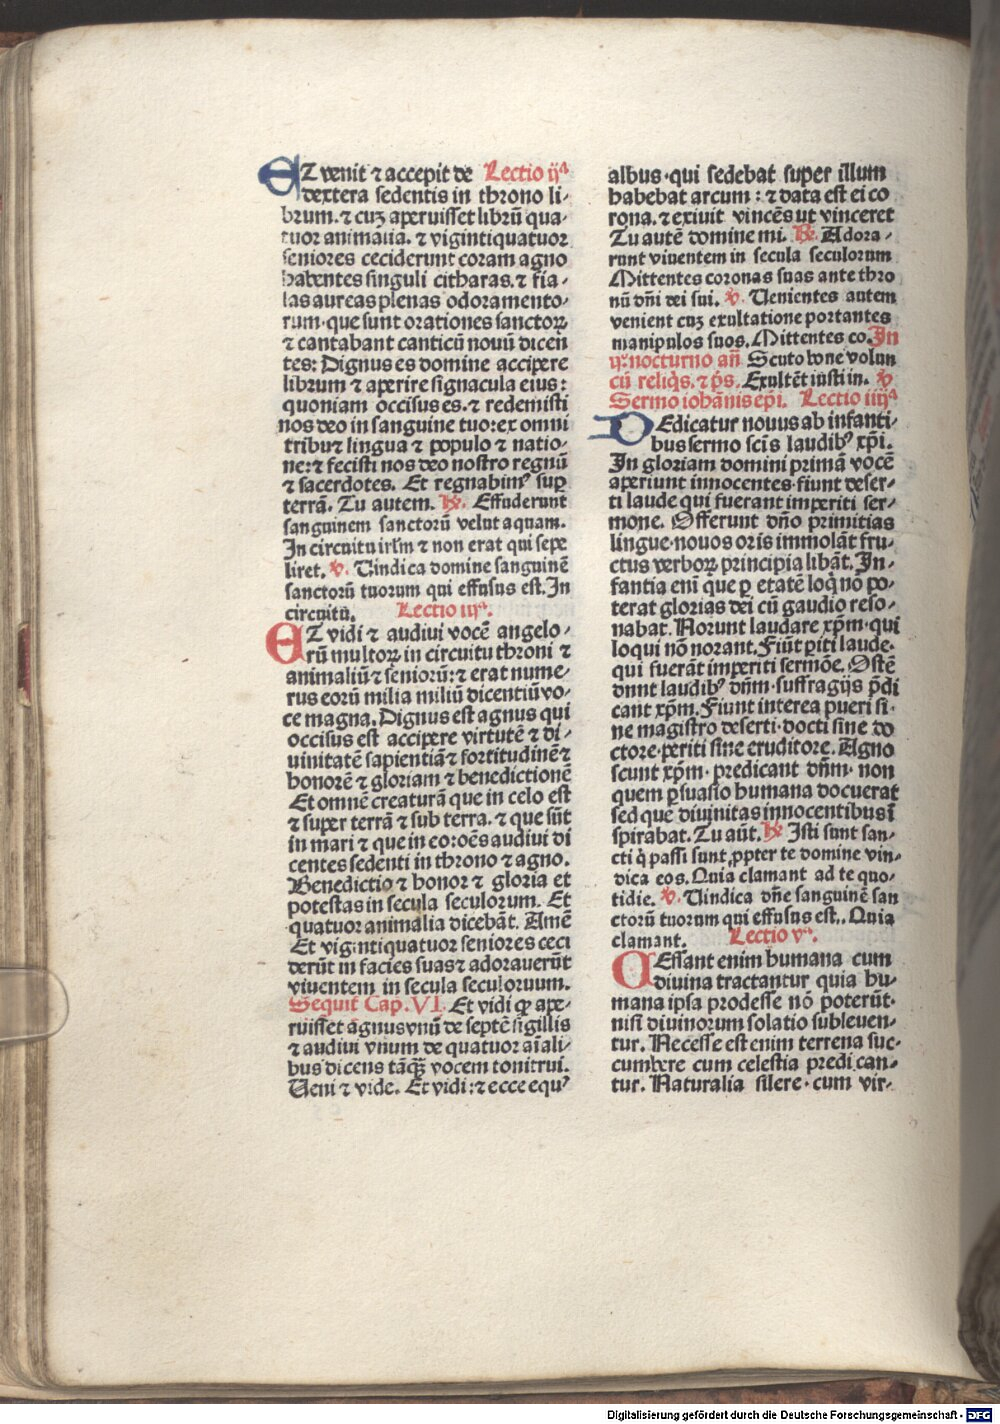 ET venit ⁊ accepit de Lectio ijª
dextera sedentis in throno li-
brum. ⁊ cuꝫ aperuisset librū qua-
tuor animalia. ⁊ vigintiquatuor
seniores ceciderunt coram agno
habentes singuli citharas. ⁊ fia-
las aureas plenas odoramento-
rum. que sunt orationes sanctoꝝ
⁊ cantabant canticū nouū dicen
tes: Dignus es domine accipere
librum ⁊ aperire signacula eius:
quoniam occisus es. ⁊ redemisti
nos deo in sanguine tuo: ex omni
tribu ⁊ lingua ⁊ populo ⁊ natio-
ne: ⁊ fecisti nos deo nostro regnū
⁊ sacerdotes. Et regnabimꝰ suꝑ
terrā. Tu autem. ℞. Effuderunt
sanguinem sanctorū velut aquam.
In circuitu irlm̄ ⁊ non erat qui sepe
liret. ℣. Uindica domine sanguinē
sanctorū tuorum qui effusus est. In
circuitu. Lectio iijª.
ET vidi ⁊ audiui vocē angelo-
rū multoꝝ in circuitu throni ⁊
animaliū ⁊ seniorū: ⁊ erat nume-
rus eorū milia miliū dicentiū vo-
ce magna. Dignus est agnus qui
occisus est accipere virtutē ⁊ di-
uinitatē sapientiā ⁊ fortitudinē ⁊
honorē ⁊ gloriam ⁊ benedictionē
Et omnē creaturā que in celo est
⁊ super terrā ⁊ sub terra. ⁊ que sūt
in mari ⁊ que in eo: oēs audiui di
centes sedenti in throno ⁊ agno.
Benedictio ⁊ honor ⁊ gloria et
potestas in secula seculorum. Et
quatuor animalia dicebāt. Amē
Et vigintiquatuor seniores ceci
derūt in facies suas ⁊ adorauerūt
viuentem in secula seculorum.
Sequit̄ Cap. VI. Et vidi ꝙ ape-
ruisset agnus vnū de septē sigillis
⁊ audiui vnum de quatuor aīali-
bus dicens tāqꝫ vocem tonitrui.
Ueni ⁊ vide. Et vidi: ⁊ ecce equꝰ
albus. qui sedebat super illum
habebat arcum: ⁊ data est ei co
rona. ⁊ exiuit vincēs ut vinceret
Tu autē domine mi. ℞. Adora-
runt viuentem in secula seculorum
Mittentes coronas suas ante thro
nū dn̄i dei sui. ℣. Uenientes autem
venient cuꝫ exultatione portantes
manipulos suos. Mittentes co. In
ijº. nocturno an̄ Scuto bone volun
cū reliq̄s. ⁊ p̄s. Exultēt iusti in. ℣
Sermo iohānis ep̄i. Lectio iiijª
DEdicatur nouus ab infanti-
bus sermo scīs laudibꝰ xp̄i.
In gloriam domini primā vocē
aperiunt innocentes. fiunt deser-
ti laude qui fuerant imperiti ser-
mone. Offerunt dn̄o primitias
lingue. nouos oris immolāt fru-
ctus verboꝝ principia libāt. In-
fantia eni que ꝑ etatē loq̄ nō po-
terat glorias dei cū gaudio reso-
nabat. Norunt laudare xp̄m. qui
loqui nō norant. Fiūt ꝑiti laude.
qui fuerāt imperiti sermōe. Ostē
dunt laudibꝰ dn̄m. suffragijs p̄di
cant xp̄m. Fiunt interea pueri si-
ne magistro deserti. docti sine do
ctore. periti sine eruditore. Agno
scunt xp̄m. predicant dn̄m. non
quem ꝑsuasio humana docuerat
sed que diuinitas innocentibus ī
spirabat. Tu aūt. ℞ Isti sunt san-
cti q̄ passi sunt ꝓpter te domine vin-
dica eos. Quia clamant ad te quo-
tidie. ℣. Uindica dn̄e sanguinē san
ctorū tuorum qui effusus est.. Quia
clamant. Lectio vª.
CEssant enim humana cum
diuina tractantur quia hu-
mana ipsa prodesse nō poterūt.
nisi diuinorum solatio subleuen-
tur. Necesse est enim terrena suc-
cumbere cum celestia predican-
tur. Naturalia silere. cum vir-
Digitalisierung gefördert durch die Deutsche Forschungsgemeinschaft - DFG